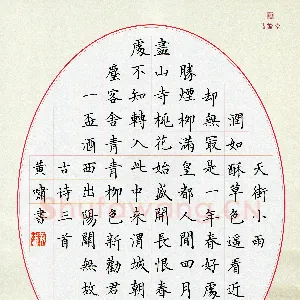 天街小雨
潤如酥草色遥看近
却無最是一年春好處
勝煙柳滿皇都人間四月
盡山寺桃花始盛開長恨春
處不知轉入此中来渭城朝
塵客舍青青柳色新勸君
一盃酒西出陽關無故
古诗三首
黄嘯書